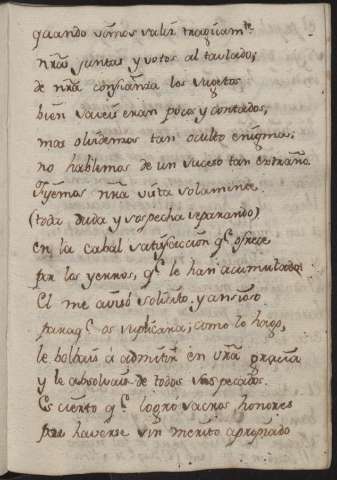 quando vimos salir tragicam.te
nr̃as juntas y votos al tablado;
de nr̃a confianza los sugetos
bien saveis eran pocos y contados,
mas olvidemos tan oculto enigma,
no hablemos de un suceso tan extraño.
Fijemos nr̃a vista solamente
(toda duda y sospecha separando)
en la cabal satisfaccion q.e ofrece
por los yerros, q.e le han acumulado.
El me avisó solicito y ansioso
paraq.e os suplicara, como lo hago,
le bolbais à admitir en vr̃a gracia
y le absolvais de todos sus pecados.
Es cierto q.e logró sacros honores
por haverse sin merito apropiado